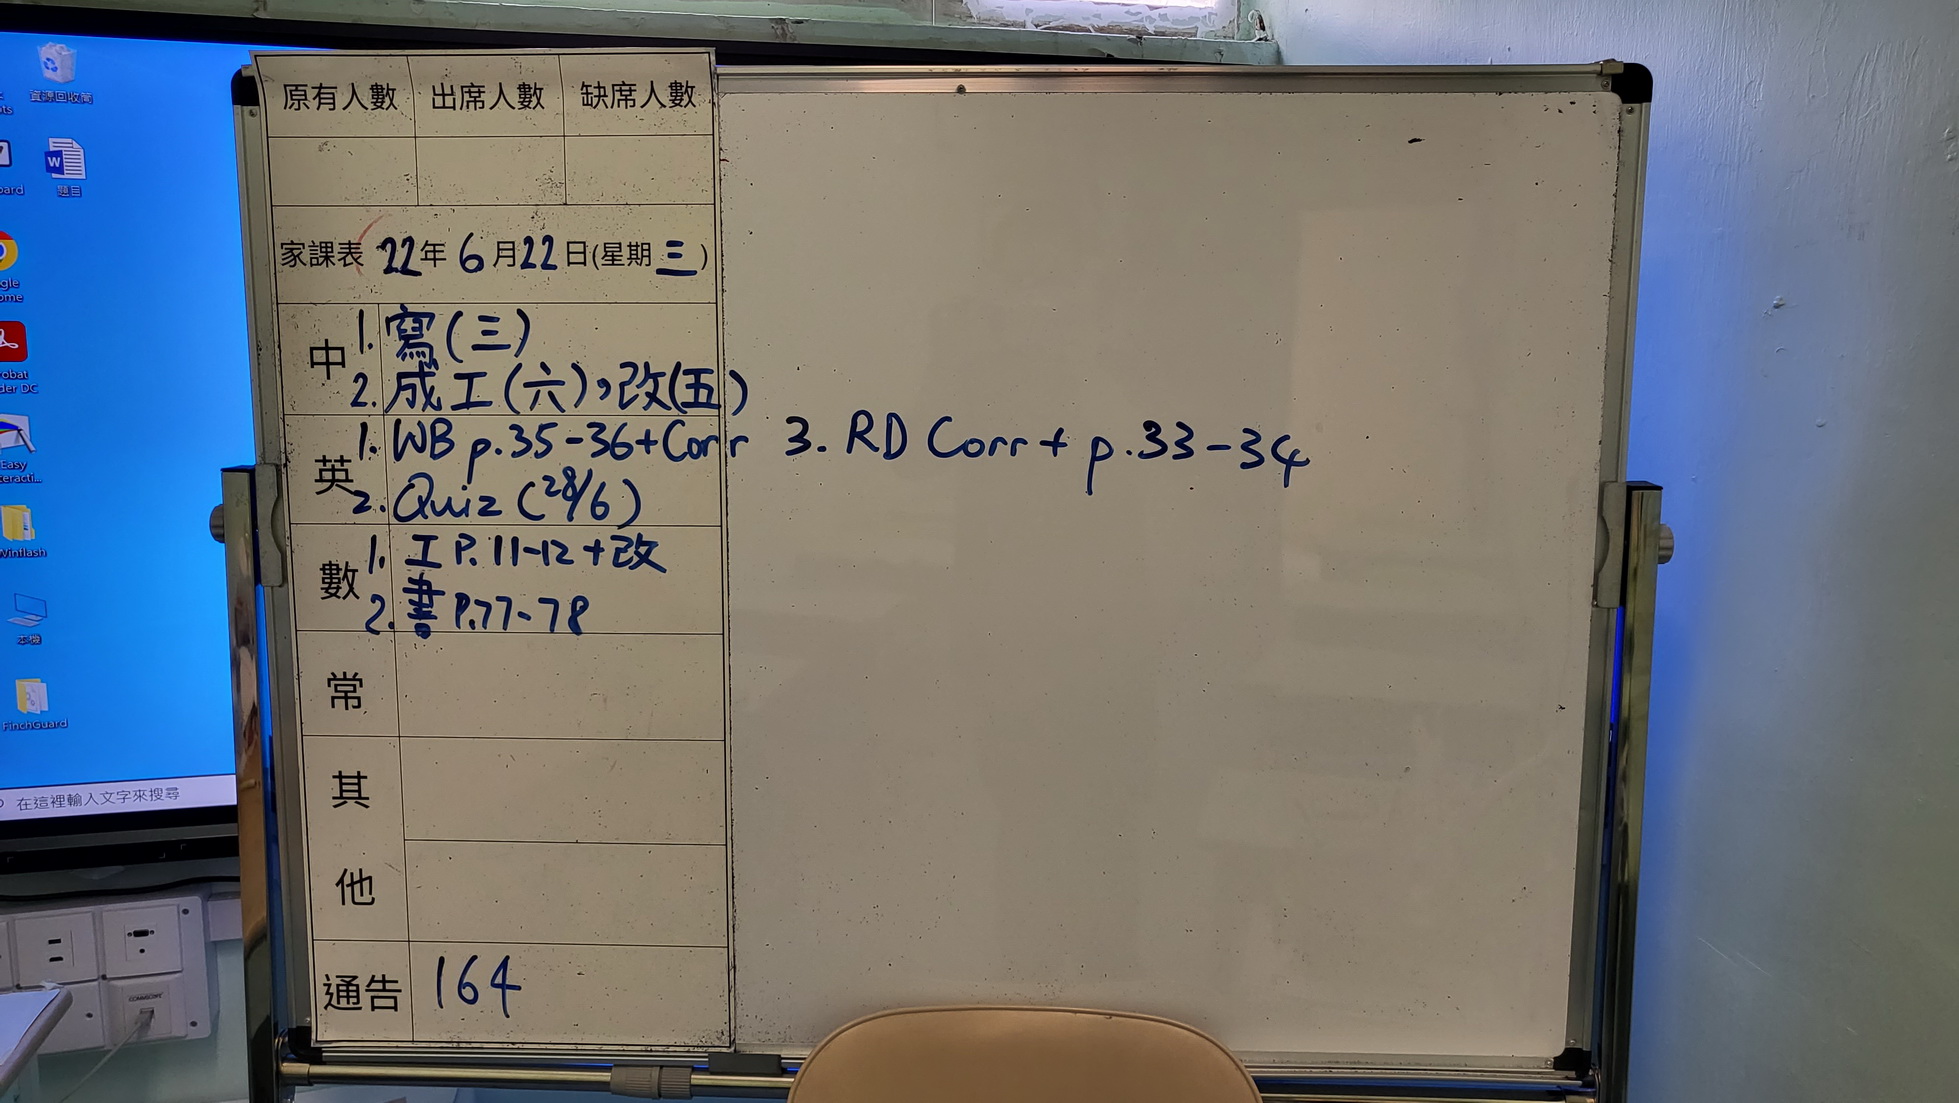 資源回收筒
題目
原有人數 出席人數 缺席人數
家課表 22年 6月22日(星期三)
中
1. 寫(三)
2. 成工(六),改(五)
英
1. WB p.35-36+Corr 3. RD Corr + p.33-34
2. Quiz (28/6)
數
1. 工 P. 11-12 +改
2. 書 P.77-78
常
其他
通告 164
本機
FinchGuard
在這裡輸入文字來搜尋
COMMSCOPE